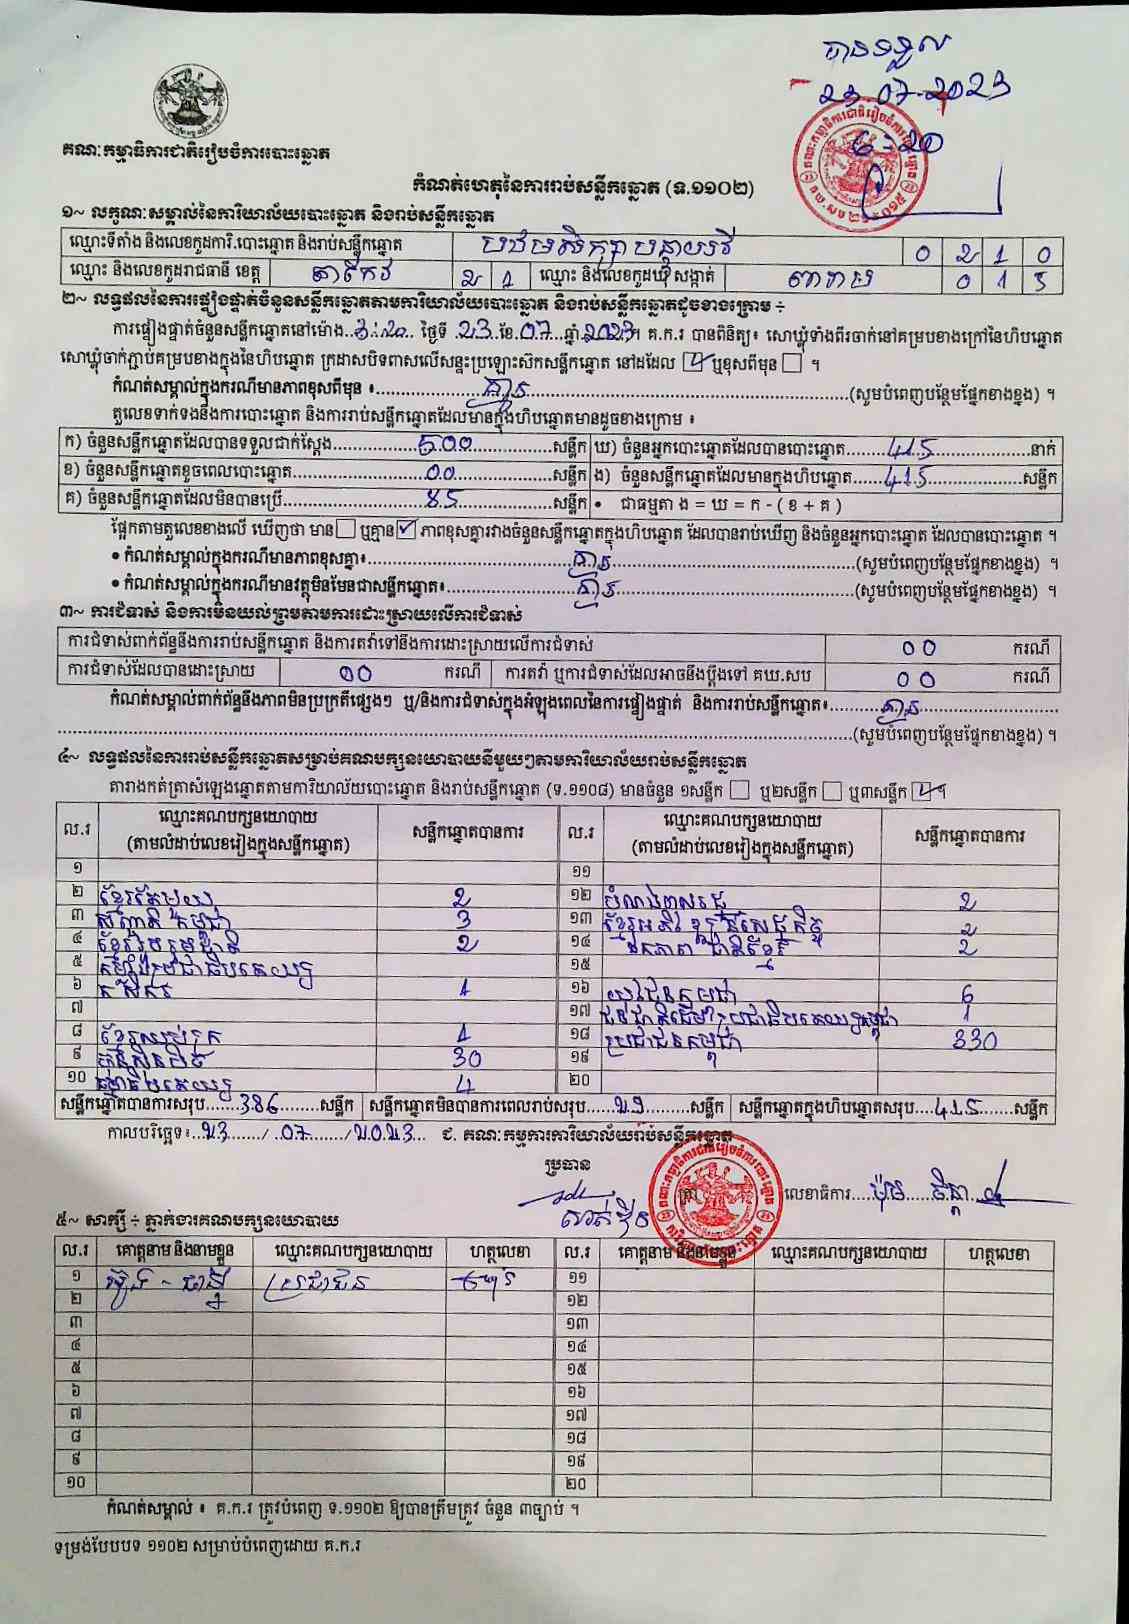 បានទទួល
23 07-2023
6-20
គណៈកម្មាធិការជាតិរៀបចំការបោះឆ្នោត
កំណត់ហេតុនៃការរាប់សន្លឹកឆ្នោត (ទ.១១០២)
១~ លក្ខណៈសម្គាល់នៃការិយាល័យបោះឆ្នោត និងរាប់សន្លឹកឆ្នោត
ឈ្មោះទីតាំង និងលេខកូដការិ.បោះឆ្នោត និងរាប់សន្លឹកឆ្នោត 0 2 1 0
ឈ្មោះ និងលេខកូដរាជធានី ខេត្ត តាកែវ 2 1 ឈ្មោះ និងលេខកូដឃុំ សង្កាត់ 0 1 5
២~ លទ្ធផលនៃការផ្ទៀងផ្ទាត់ចំនួនសន្លឹកឆ្នោតតាមការិយាល័យបោះឆ្នោត និងរាប់សន្លឹកឆ្នោតដូចខាងក្រោម ÷
ការផ្ទៀងផ្ទាត់ចំនួនសន្លឹកឆ្នោតនៅម៉ោង..3:20... ថ្ងៃទី .23.ខែ.07...ឆ្នាំ.2023។ គ.ក.រ បានពិនិត្យ៖ សោឃ្លុំទាំងពីរចាក់នៅគម្របខាងក្រៅនៃហិបឆ្នោត
សោឃ្លុំចាក់ភ្ជាប់គម្របខាងក្នុងនៃហិបឆ្នោត ក្រដាសបិទពាសលើសន្ទះប្រឡោះស៊កសន្លឹកឆ្នោត នៅដដែល ☑ ឬខុសពីមុន ☐ ។
កំណត់សម្គាល់ក្នុងករណីមានភាពខុសពីមុន ៖......គ្មាន......(សូមបំពេញបន្ថែមផ្នែកខាងខ្នង) ។
តួលេខទាក់ទងនឹងការបោះឆ្នោត និងការរាប់សន្លឹកឆ្នោតដែលមានក្នុងហិបឆ្នោតមានដូចខាងក្រោម ៖
ក) ចំនួនសន្លឹកឆ្នោតដែលបានទទួលជាក់ស្តែង......500......សន្លឹក ឃ) ចំនួនអ្នកបោះឆ្នោតដែលបានបោះឆ្នោត......415......នាក់
ខ) ចំនួនសន្លឹកឆ្នោតខូចពេលបោះឆ្នោត......00......សន្លឹក ង) ចំនួនសន្លឹកឆ្នោតដែលមានក្នុងហិបឆ្នោត......415......សន្លឹក
គ) ចំនួនសន្លឹកឆ្នោតដែលមិនបានប្រើ......85......សន្លឹក • ជាធម្មតា ង = ឃ = ក - ( ខ + គ )
ផ្អែកតាមតួលេខខាងលើ ឃើញថា មាន☐ ឬគ្មាន☑ ភាពខុសគ្នារវាងចំនួនសន្លឹកឆ្នោតក្នុងហិបឆ្នោត ដែលបានរាប់ឃើញ និងចំនួនអ្នកបោះឆ្នោត ដែលបានបោះឆ្នោត ។
• កំណត់សម្គាល់ក្នុងករណីមានភាពខុសគ្នា៖......គ្មាន......(សូមបំពេញបន្ថែមផ្នែកខាងខ្នង) ។
• កំណត់សម្គាល់ក្នុងករណីមានវត្ថុមិនមែនជាសន្លឹកឆ្នោត៖......គ្មាន......(សូមបំពេញបន្ថែមផ្នែកខាងខ្នង) ។
៣~ ការជំទាស់ និងការមិនយល់ព្រមតាមការដោះស្រាយលើការជំទាស់
ការជំទាស់ពាក់ព័ន្ធនឹងការរាប់សន្លឹកឆ្នោត និងការតវ៉ាទៅនឹងការដោះស្រាយលើការជំទាស់ 00 ករណី
ការជំទាស់ដែលបានដោះស្រាយ 00 ករណី ការតវ៉ា ឬការជំទាស់ដែលអាចនឹងប្តឹងទៅ គឃ.សប 00 ករណី
កំណត់សម្គាល់ពាក់ព័ន្ធនឹងភាពមិនប្រក្រតីផ្សេងៗ ឬ/និងការជំទាស់ក្នុងអំឡុងពេលនៃការផ្ទៀងផ្ទាត់ និងការរាប់សន្លឹកឆ្នោត៖......គ្មាន......
......(សូមបំពេញបន្ថែមផ្នែកខាងខ្នង) ។
៤~ លទ្ធផលនៃការរាប់សន្លឹកឆ្នោតសម្រាប់គណបក្សនយោបាយនីមួយៗតាមការិយាល័យរាប់សន្លឹកឆ្នោត
តារាងកត់ត្រាសំឡេងឆ្នោតតាមការិយាល័យបោះឆ្នោត និងរាប់សន្លឹកឆ្នោត (ទ.១១០៨) មានចំនួន ១សន្លឹក ☐ ឬ២សន្លឹក ☐ ឬ៣សន្លឹក ☑ ។
ល.រ ឈ្មោះគណបក្សនយោបាយ សន្លឹកឆ្នោតបានការ ល.រ ឈ្មោះគណបក្សនយោបាយ សន្លឹកឆ្នោតបានការ
(តាមលំដាប់លេខរៀងក្នុងសន្លឹកឆ្នោត) (តាមលំដាប់លេខរៀងក្នុងសន្លឹកឆ្នោត)
១ ១១
២ ខ្មែរតែមួយ 2 ១២ 2
៣ កម្ពុជា 3 ១៣ 2
៤ ខ្មែររួបរួមជាតិ 2 ១៤ ឯកភាពជាតិខ្មែរ 2
៥ ១៥
៦ កសិករ 1 ១៦ យុវជនកម្ពុជា 6
៧ ១៧ ជនជាតិដើមប្រជាធិបតេយ្យកម្ពុជា 1
៨ 1 ១៨ ប្រជាជនកម្ពុជា 330
៩ ហ៊្វុនស៊ិនប៉ិច 30 ១៩
១០ 4 ២០
សន្លឹកឆ្នោតបានការសរុប......386......សន្លឹក សន្លឹកឆ្នោតមិនបានការពេលរាប់សរុប......29......សន្លឹក សន្លឹកឆ្នោតក្នុងហិបឆ្នោតសរុប....415......សន្លឹក
កាលបរិច្ឆេទ៖..23....../..07....../2023... ជ. គណៈកម្មការការិយាល័យរាប់សន្លឹកឆ្នោត
ប្រធាន
លេខាធិការ
៥~ សាក្សី ÷ ភ្នាក់ងារគណបក្សនយោបាយ
ល.រ គោត្តនាម និងនាមខ្លួន ឈ្មោះគណបក្សនយោបាយ ហត្ថលេខា ល.រ គោត្តនាម និងនាមខ្លួន ឈ្មោះគណបក្សនយោបាយ ហត្ថលេខា
១ ប្រជាជន ១១
២ ១២
៣ ១៣
៤ ១៤
៥ ១៥
៦ ១៦
៧ ១៧
៨ ១៨
៩ ១៩
១០ ២០
កំណត់សម្គាល់ ៖ គ.ក.រ ត្រូវបំពេញ ទ.១១០២ ឱ្យបានត្រឹមត្រូវ ចំនួន ៣ច្បាប់ ។
ទម្រង់បែបបទ ១១០២ សម្រាប់បំពេញដោយ គ.ក.រ